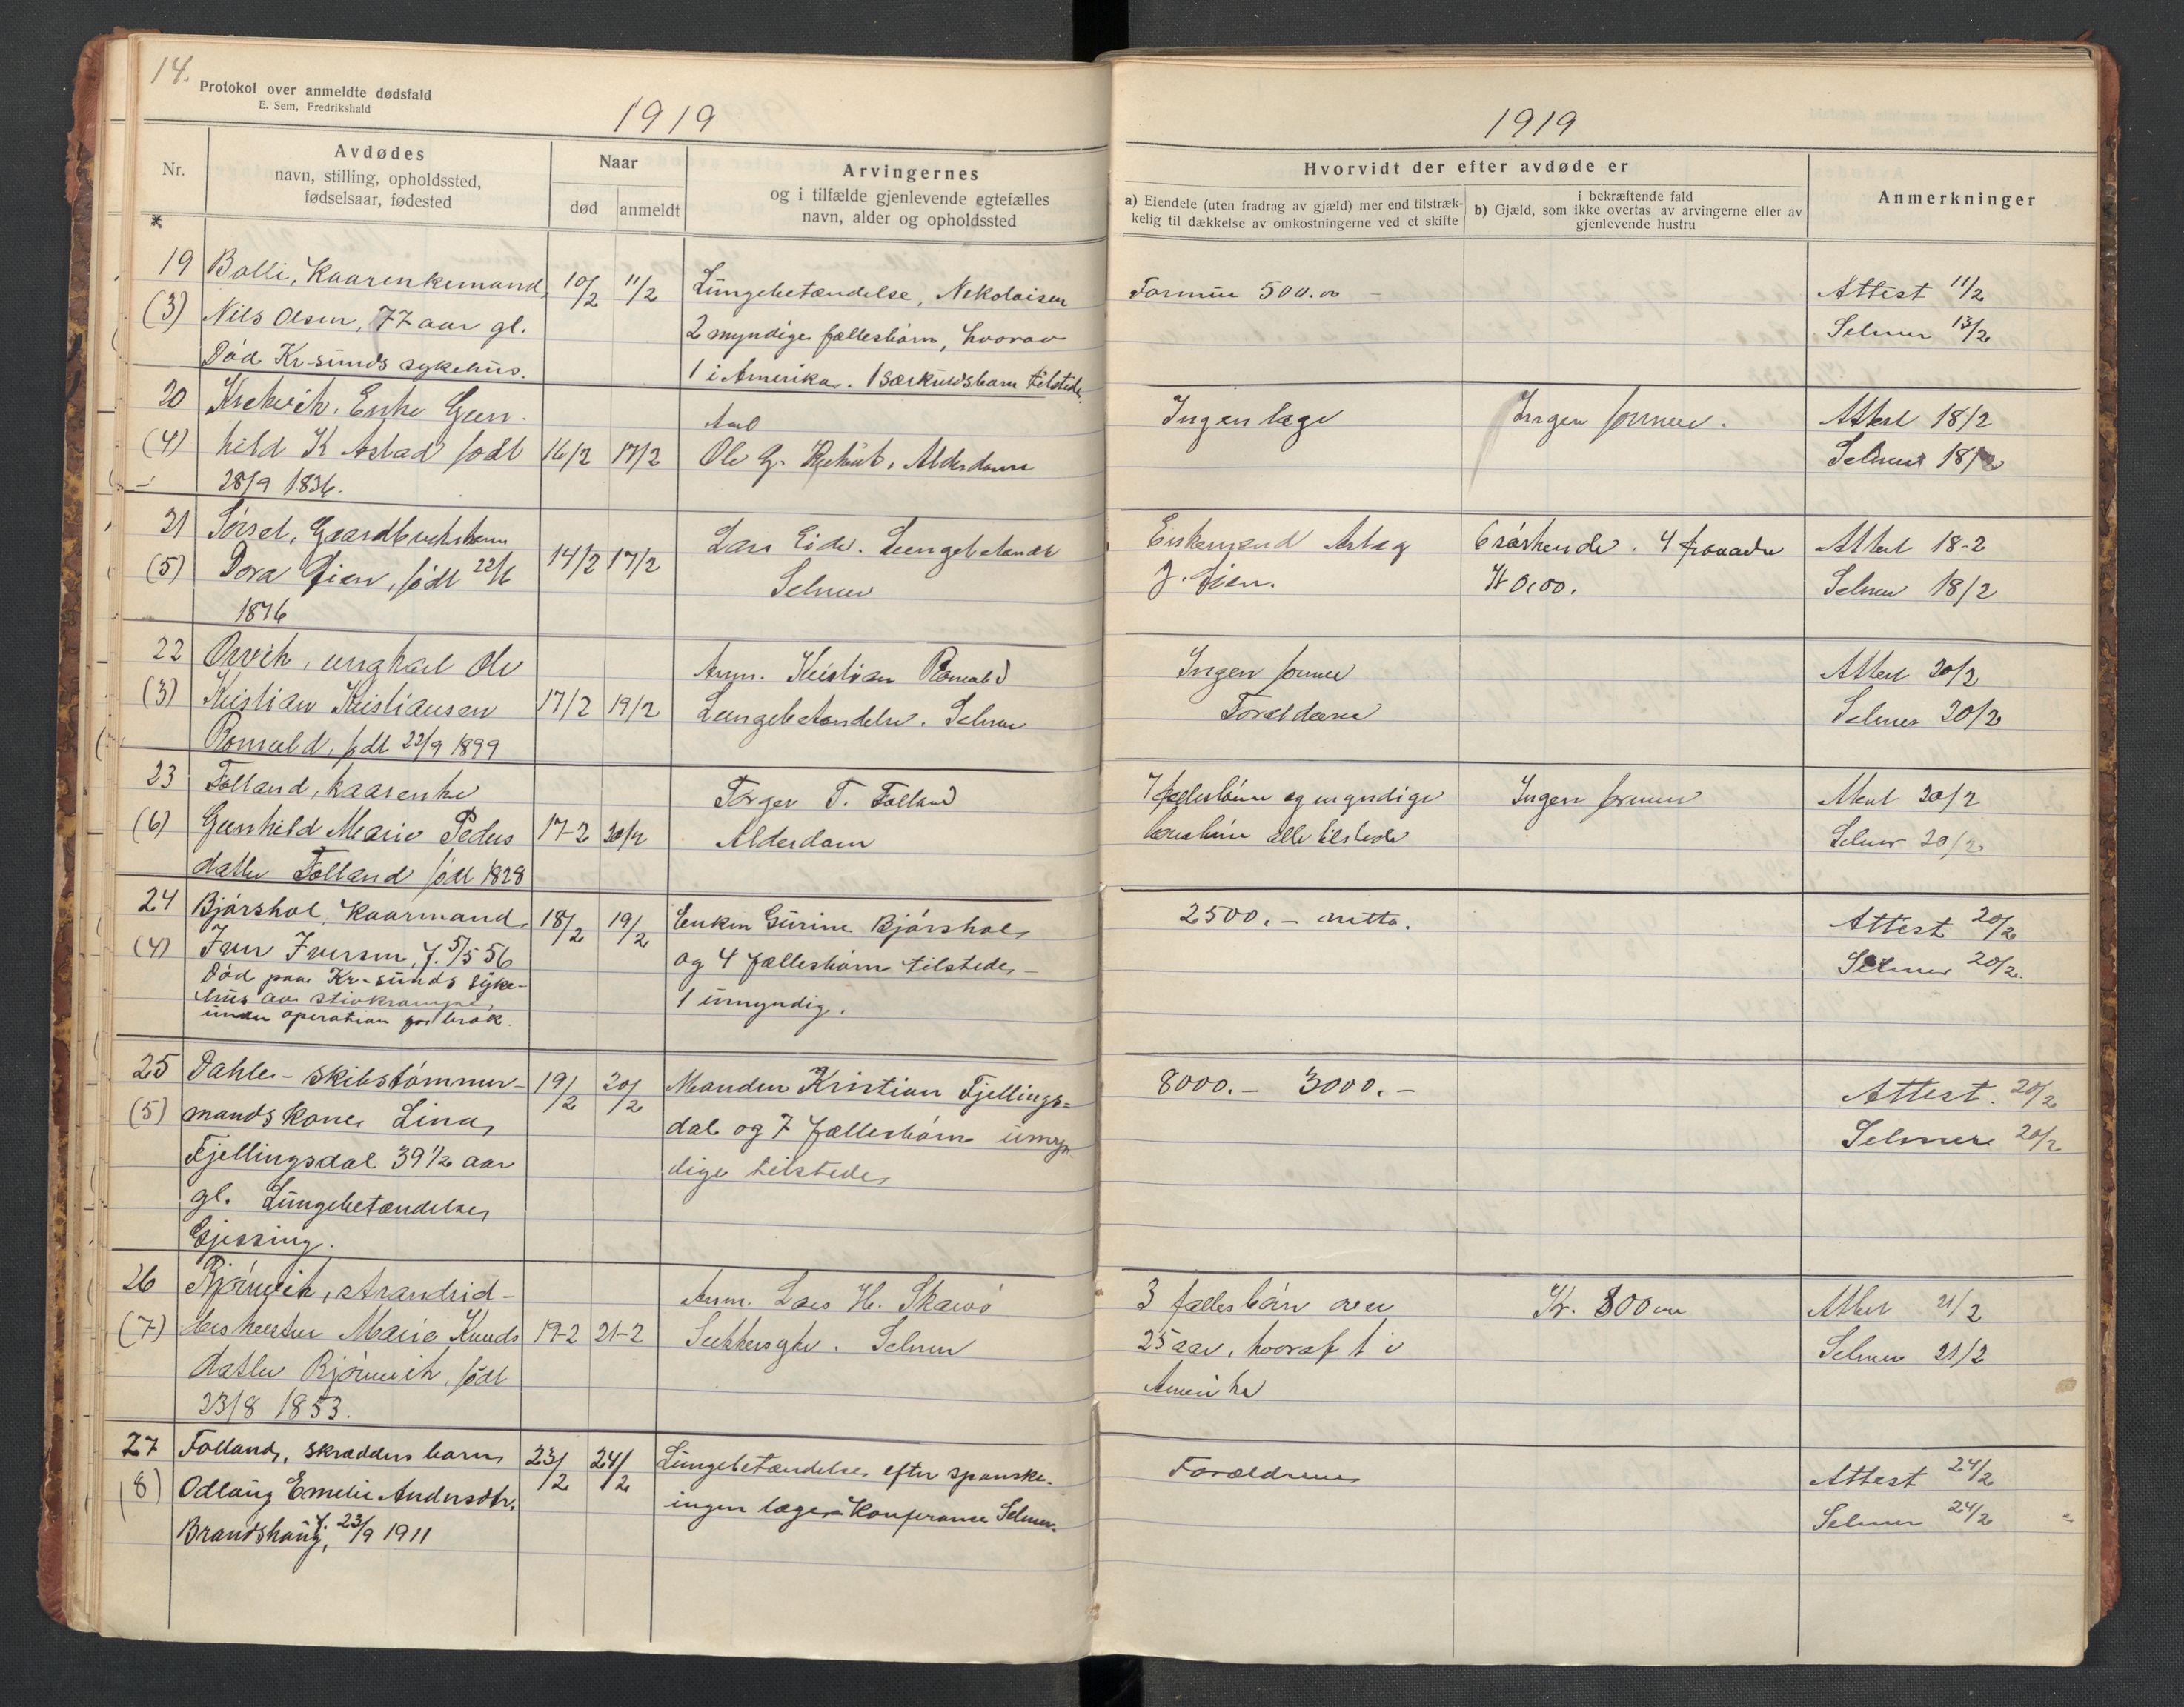 14.
Protokol over anmeldte dødsfald
E. Sem, Fredrikshald
1919
Nr.
Avdødes
navn, stilling, opholdssted,
fødselsaar, fødested
Naar
død
anmeldt
Arvingernes
og i tilfælde gjenlevende egtefælles
navn, alder og opholdssted
19
(3)
Bolli, Kaarenkemand,
Nils Olsen, 77 aar gl.
Død Kr-sunds sykehus.
10/2
11/2
Lungebetændelse, Nekolaisen
2 myndige fællesbørn, hvorav
1 i Amerika. 1 særkuldsbarn tilstede.
20
(4)
Enke Gun-
hild K Astad født
28/9 1836.
16/2
17/2
Anl
Ole G. Alderdom
21
(5)
Sørset, Gaardbrukerkone
Dora født 22/6
1876
14/2
17/2
Lars Eide. Lungebetændel
Selmer
22
(3)
Orvik, ungkarl Ole
Kristian Kristiansen
Romuld, født 22/9 1899
17/2
19/2
Anm. Kristian Romuld
Lungebetændelse. Selmer
23
(6)
Folland, kaarenke
Gunhild Marie Peders
datter Folland født 1828
17-2
20/2
Torger T. Folland
Alderdom
24
(4)
Bjørshol, Kaarmand,
Iver Iversen, f. 5/5 56
Død paa Kr-sunds syke-
hus av stivkrampe
under operation for brok.
18/2
19/2
Enken Gurine Bjørshol
og 4 fællesbørn tilstede,
1 umyndig.
25
(5)
Dahle - skibstømmer-
mandskone Lina
Fjellingsdal 39 1/2 aar
gl. Lungebetændelse
Gjessing.
19/2
20/2
Manden Kristian Fjellings=
dal og 7 fællesbørn umyn
dige tilstede
26
(7)
Bjørnvik, strandsid-
derskerster Marie Knuds
datter Bjørnvik, født
23/8 1853.
19-2
21-2
Anm. Lars H. Skarvø
Sukkersyke. Selmer
27
(8)
Folland, skrædders barn
Odlaug Emelie Andersdtr.
Brandshaug, f. 23/9 1911
23/2
24/2
Lungebetændelse efter spanske.
ingen læge - Konferance Selmer.
1919
Hvorvidt der efter avdøde er
a) Eiendele (uten fradrag av gjæld) mer end tilstræk-
kelig til dækkelse av omkostningerne ved et skifte
i bekræftende fald
b) Gjæld, som ikke overtas av arvingerne eller av
gjenlevende hustru
Anmerkninger
Formue 500.00
Attest 11/2
Selmer 13/2
Ingen læge
Ingen formue.
Attest 18/2
Selmer 18/2
Enkemand Aslag
6 søskende. 4
Attest 18-2
Selmer 18/2
Ingen formue
Forældrene
Attest 20/2
Selmer 20/2
7 fællesbørn og myndige
alle tilstede
Ingen formue
Attest 20/2
Selmer 20/2
2500.- netto.
Attest 20/2
Selmer 20/2.
8000.- 3000.-
Attest. 20/2
Selmer 20/2
3 fællesbørn over
25 aar, hvoraf 1 i
Amerika
Kr. 800
Attest 21/2
Selmer 21/2
Forældrene
Attest 24/2
Selmer 24/2